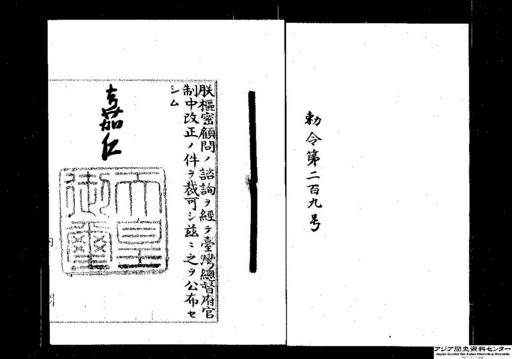 勅令第二百九号
朕樞密顧問ノ諮詢ヲ經テ臺灣總督府官
制中改正ノ件ヲ裁可シ茲ニ之ヲ公布セ
シム
嘉仁
天皇
御璽
アジア歴史資料センター
Japan Center for Asian Historical Records